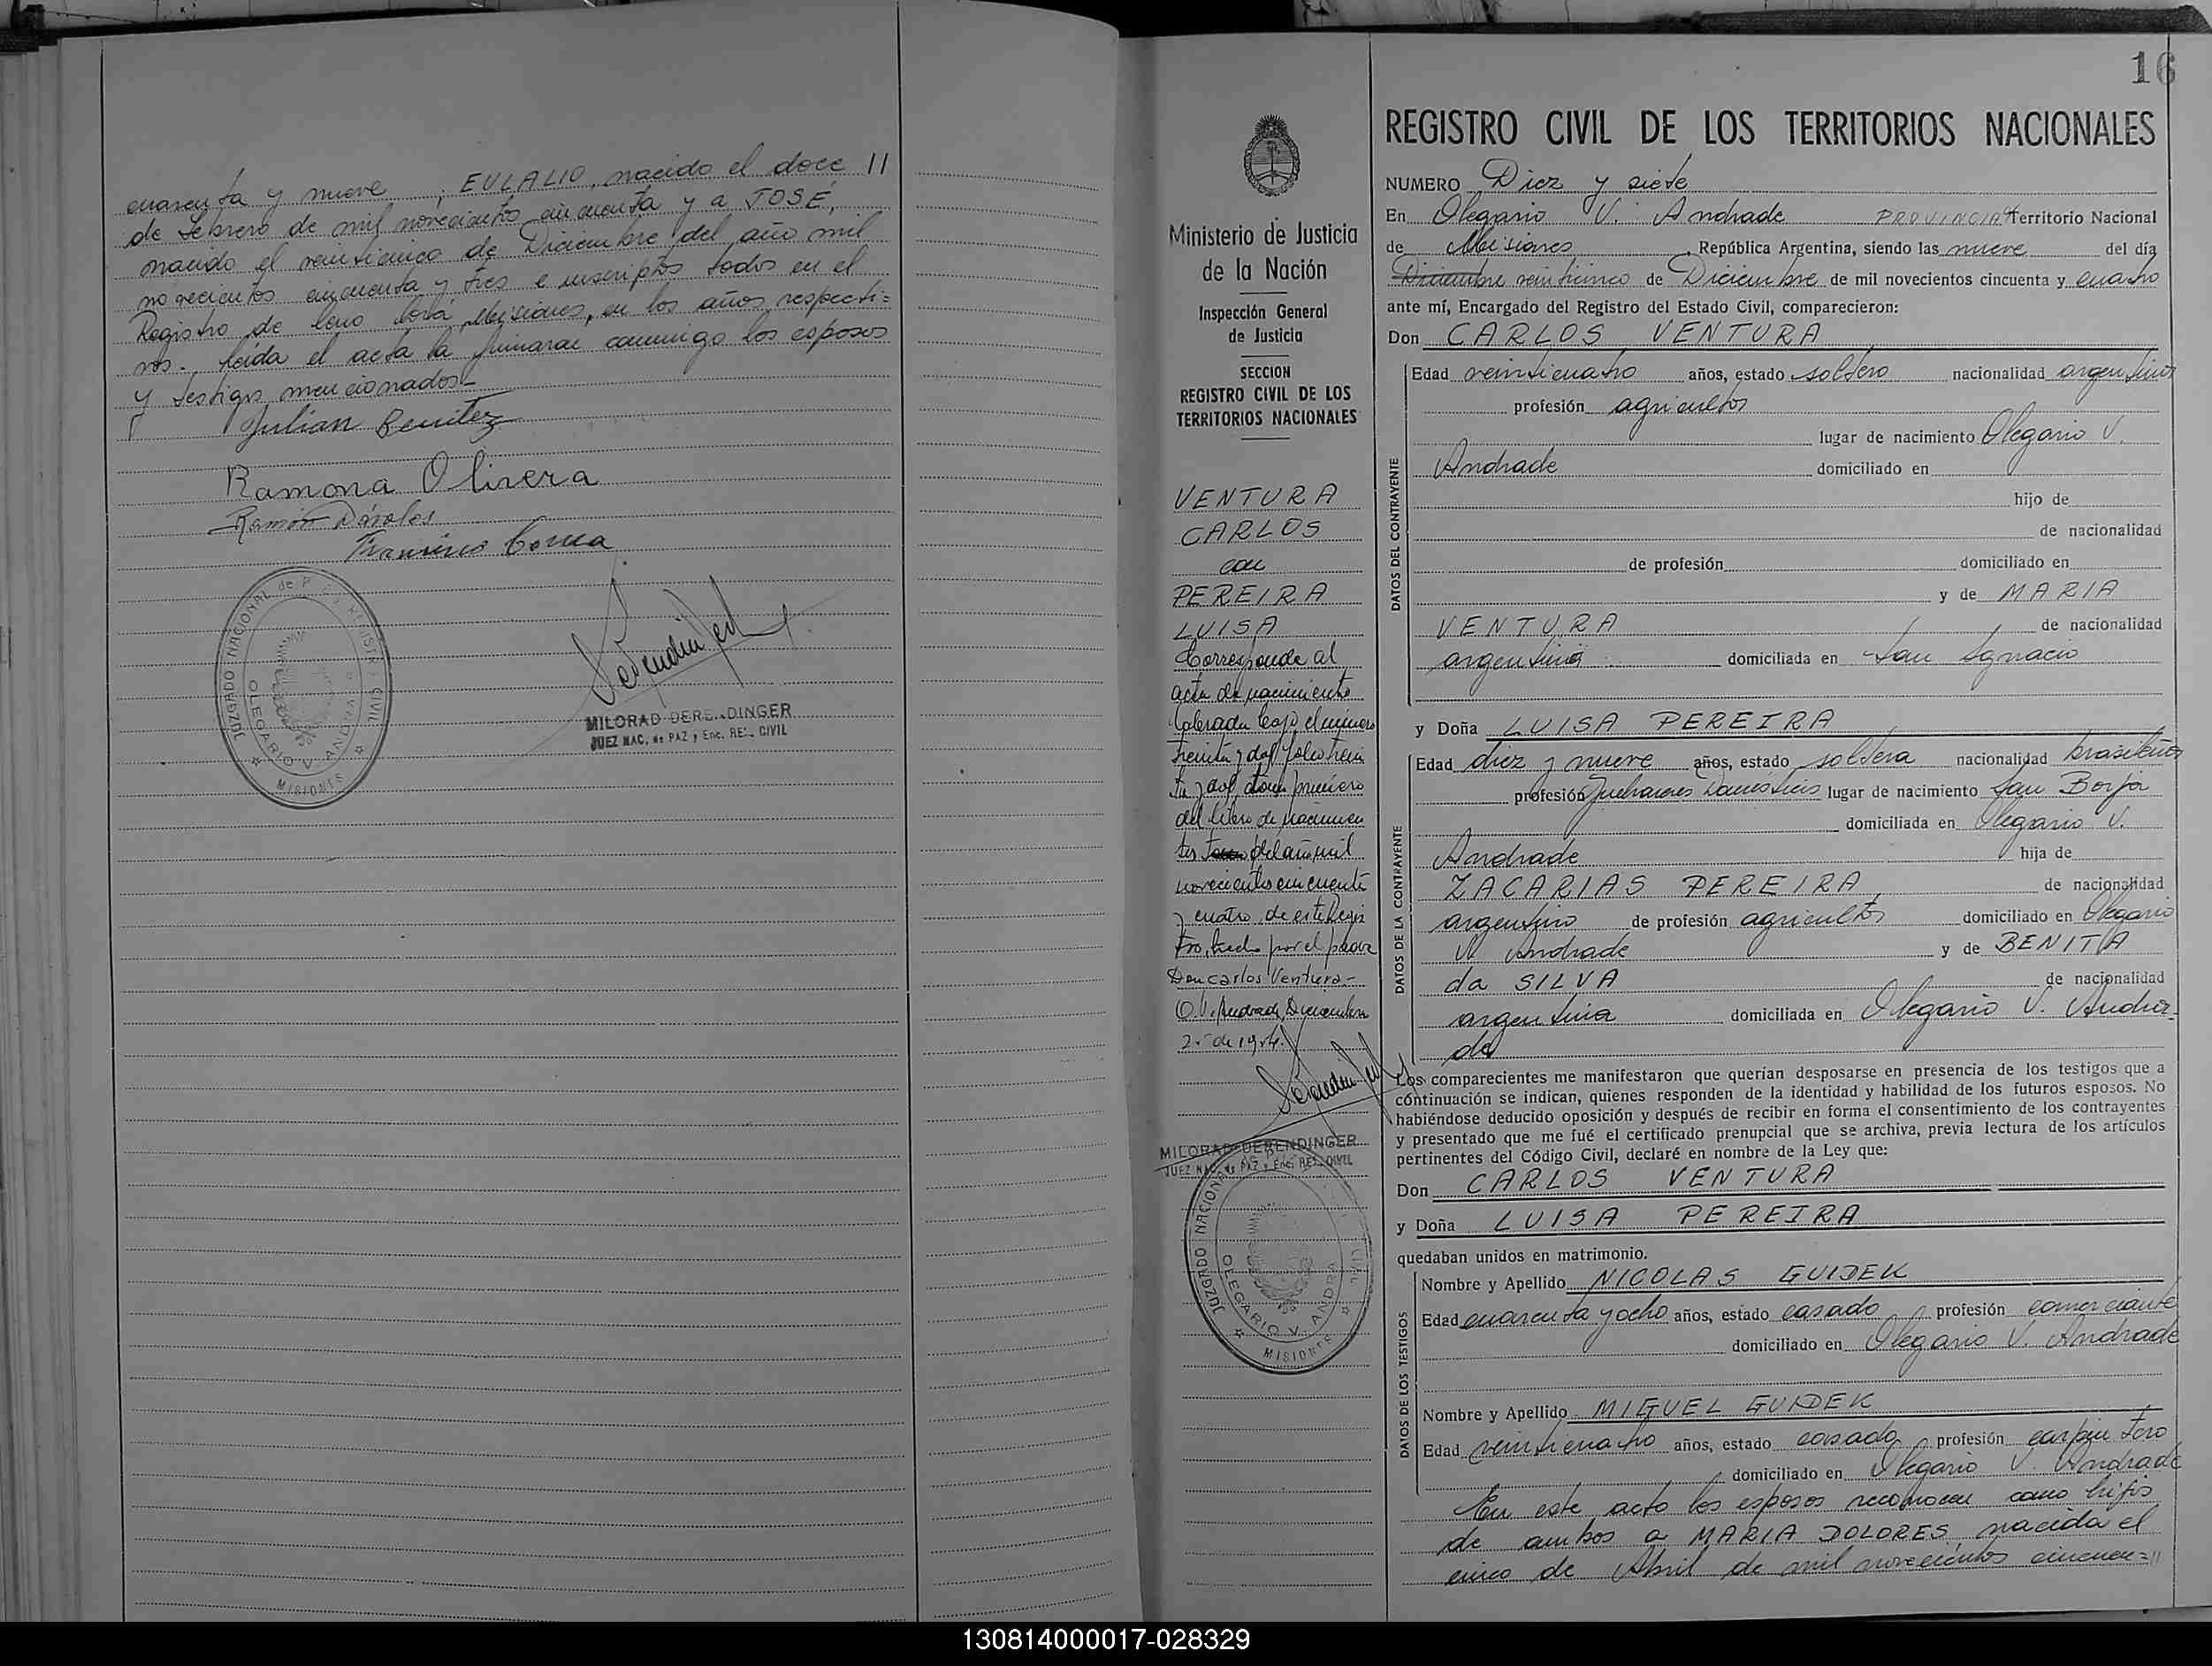 cuarenta y nueve ; EULALIO, nacido el doce //
de Febrero de mil novecientos cincuenta y a JOSÉ,
nacido el veinticinco de Diciembre del año mil
novecientos cincuenta y tres e inscriptos todos en el
Registro de Corá, Misiones, en los años respecti=
vos. Leída el acta la firmaran conmigo los esposos
y testigos mencionados-
Julian Benitez
Ramona Olivera
Ramón Dávalos
Francisco Correa
JUZGADO NACIONAL de P
CIVIL
OLEGARIO V. ANDRADE
MISIONES
MILORAD DERENDINGER
JUEZ NAC. de PAZ y Enc. REG. CIVIL
Ministerio de Justicia
de la Nación
Inspección General
de Justicia
SECCION
REGISTRO CIVIL DE LOS
TERRITORIOS NACIONALES
VENTURA
CARLOS
con
PEREIRA
LUISA
Corresponde al
acta de nacimiento
labrada bajo el número
treinta y dos folio trein
ta y dos, tomo primero
del libro de nacimien
tos tomo del año mil
novecientos cincuenta
y cuatro, de este Regis
tro, hecho por el padre
Don Carlos Ventura.-
O.V. Andrade, Diciembre
de 1954.
MILORAD DERENDINGER
JUEZ NAC. de PAZ y Enc. REG. CIVIL
JUZGADO NACIONAL
OLEGARIO V. ANDRADE
MISIONES
16
REGISTRO CIVIL DE LOS TERRITORIOS NACIONALES
NUMERO Diez y siete
En Olegario V. Andrade PROVINCIA Territorio Nacional
de Misiones, República Argentina, siendo las nueve del día
Diciembre veinticinco de Diciembre de mil novecientos cincuenta y cuatro
ante mí, Encargado del Registro del Estado Civil, comparecieron:
Don CARLOS VENTURA
DATOS DEL CONTRAYENTE
Edad veinticuatro años, estado soltero nacionalidad argentino
profesión agricultor
lugar de nacimiento Olegario V.
Andrade domiciliado en
hijo de
de nacionalidad
de profesión domiciliado en
y de MARIA
VENTURA de nacionalidad
argentina domiciliada en San Ignacio
y Doña LUISA PEREIRA
DATOS DE LA CONTRAYENTE
Edad diez y nueve años, estado soltera nacionalidad brasileña
profesión Quehaceres Domésticos lugar de nacimiento San Borja
domiciliada en Olegario V.
Andrade hija de
ZACARIAS PEREIRA de nacionalidad
argentino de profesión agricultor domiciliado en Olegario
V. Andrade y de BENITA
da SILVA de nacionalidad
argentina domiciliada en Olegario V. Andra-
de
Los comparecientes me manifestaron que querían desposarse en presencia de los testigos que a
continuación se indican, quienes responden de la identidad y habilidad de los futuros esposos. No
habiéndose deducido oposición y después de recibir en forma el consentimiento de los contrayentes
y presentado que me fué el certificado prenupcial que se archiva, previa lectura de los artículos
pertinentes del Código Civil, declaré en nombre de la Ley que:
Don CARLOS VENTURA
y Doña LUISA PEREIRA
quedaban unidos en matrimonio.
DATOS DE LOS TESTIGOS
Nombre y Apellido NICOLAS GUIDEK
Edad cuarenta y ocho años, estado casado profesión comerciante
domiciliado en Olegario V. Andrade
Nombre y Apellido MIGUEL GUIDEK
Edad veinticuatro años, estado casado profesión carpintero
domiciliado en Olegario V. Andrade
En este acto los esposos reconocen como hijos
de ambos a MARIA DOLORES nacida el
cinco de Abril de mil novecientos cincuen=//
130814000017-028329